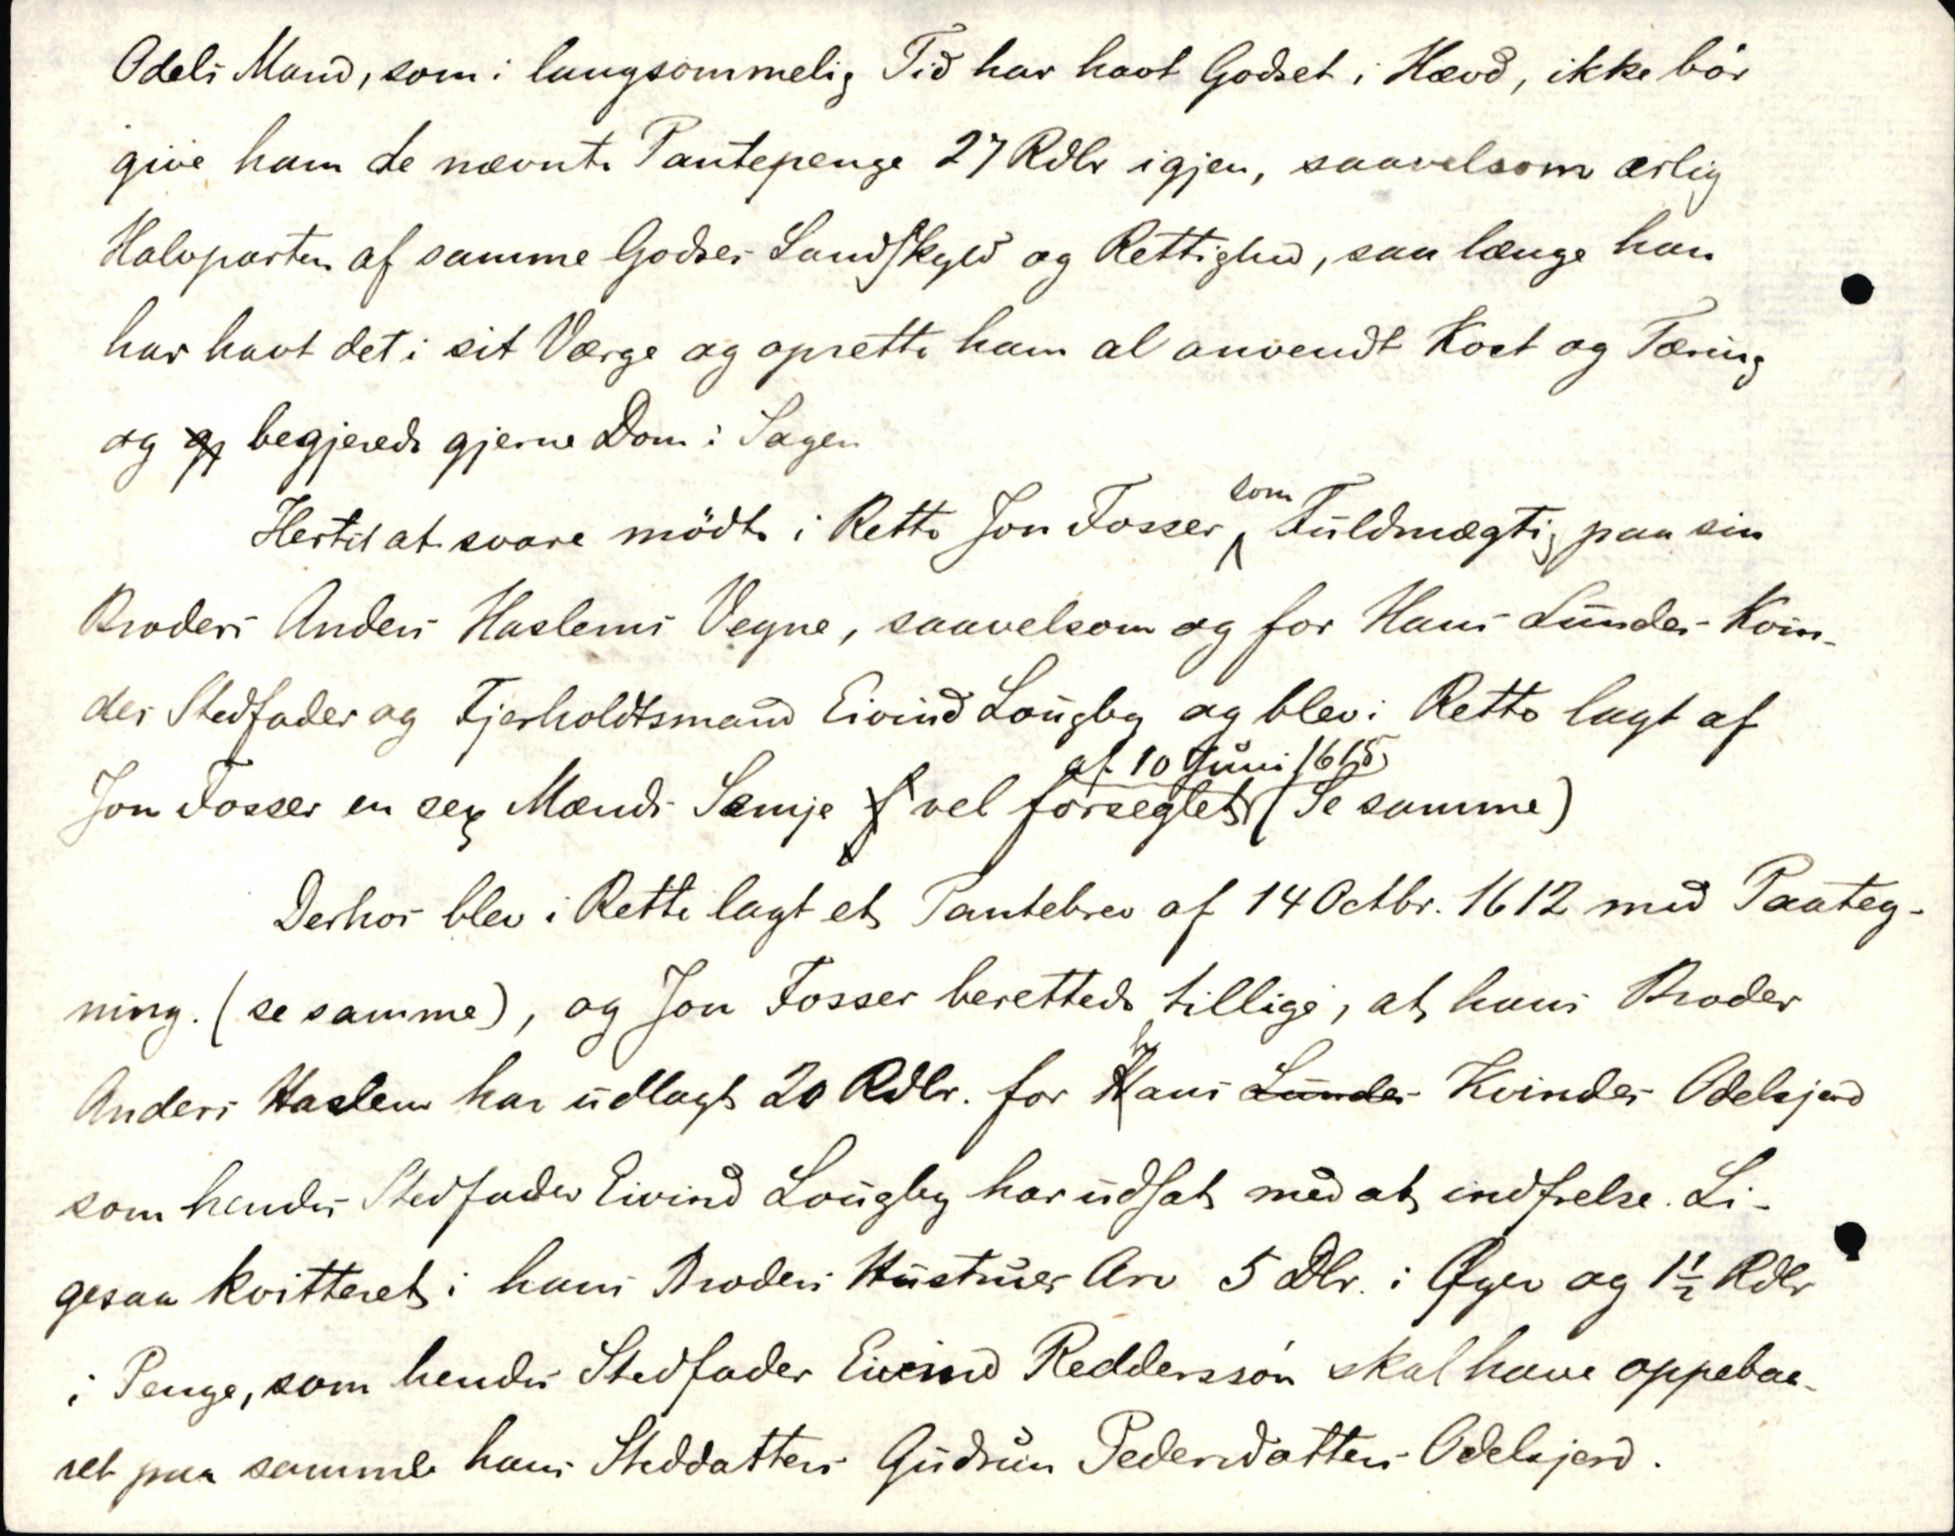 Odels Mand, som i langsommelig Tid har havt Godset i Hævd, ikke bör
give ham de nævnte Pantepenge 27 Rdlr igjen, saavelsom ærlig
Halvparten af samme Godses Landskyld og Rettighed, saa længe han
har havt det i sit Værge og oprette ham al anvendt Kost og Tæring
og begjerede gjerne Dom i Sagen
Hertil at svare mödte i Rette Jon Fosser som Fuldmægtig paa sin
Broders Anders Haslems Vegne, saavelsom og for Hans Lundes Kvin-
des Stedfader og Fjerholdtsmand Eivind Lougby og blev i Rette lagt af
af 10 Juni 1615
Jon Fosser en sex Mænds Semje vel forseglet (Se samme)
Derhos blev i Rette lagt et Pantebrev af 14 Octbr. 1612 med Paateg-
ning. (se samme), og Jon Fosser berettede tillige, at hans Broder
Anders Haslem har udlagt 20 Rdlr. for hans Lundes Kvindes Odelsjord
som hendes Stedfader Eivind Lougby har udsat med at indfrelse. Li-
gesaa kvitteret i hans Broders Hustrues Arv 5 Dlr. i Øger og 1½ Rdlr
i Penge, som hendes Stedfader Eivind Redderssön skal have oppebaa-
ret paa samme hans Steddatters Gudrun Pedersdatters Odelsjord.